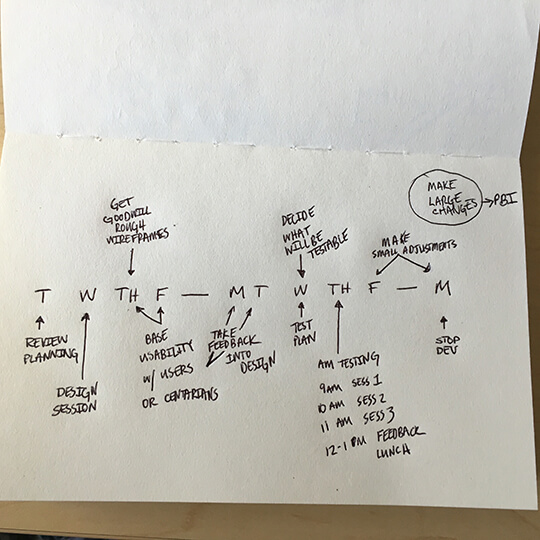 GET
GOODWILL
ROUGH
WIREFRAMES
DECIDE
WHAT
WILL BE
TESTABLE
MAKE
LARGE
CHANGES
PBI
MAKE
SMALL ADJUSTMENTS
T W TH F — M T W TH F — M
REVIEW
PLANNING
DESIGN
SESSION
BASE
USABILITY
W/ USERS
OR CENTARIANS
TAKE
FEEDBACK
INTO
DESIGN
TEST
PLAN
AM TESTING
9AM SESS 1
10 AM SESS 2
11 AM SESS 3
12-1 PM FEEDBACK
LUNCH
STOP
DEV